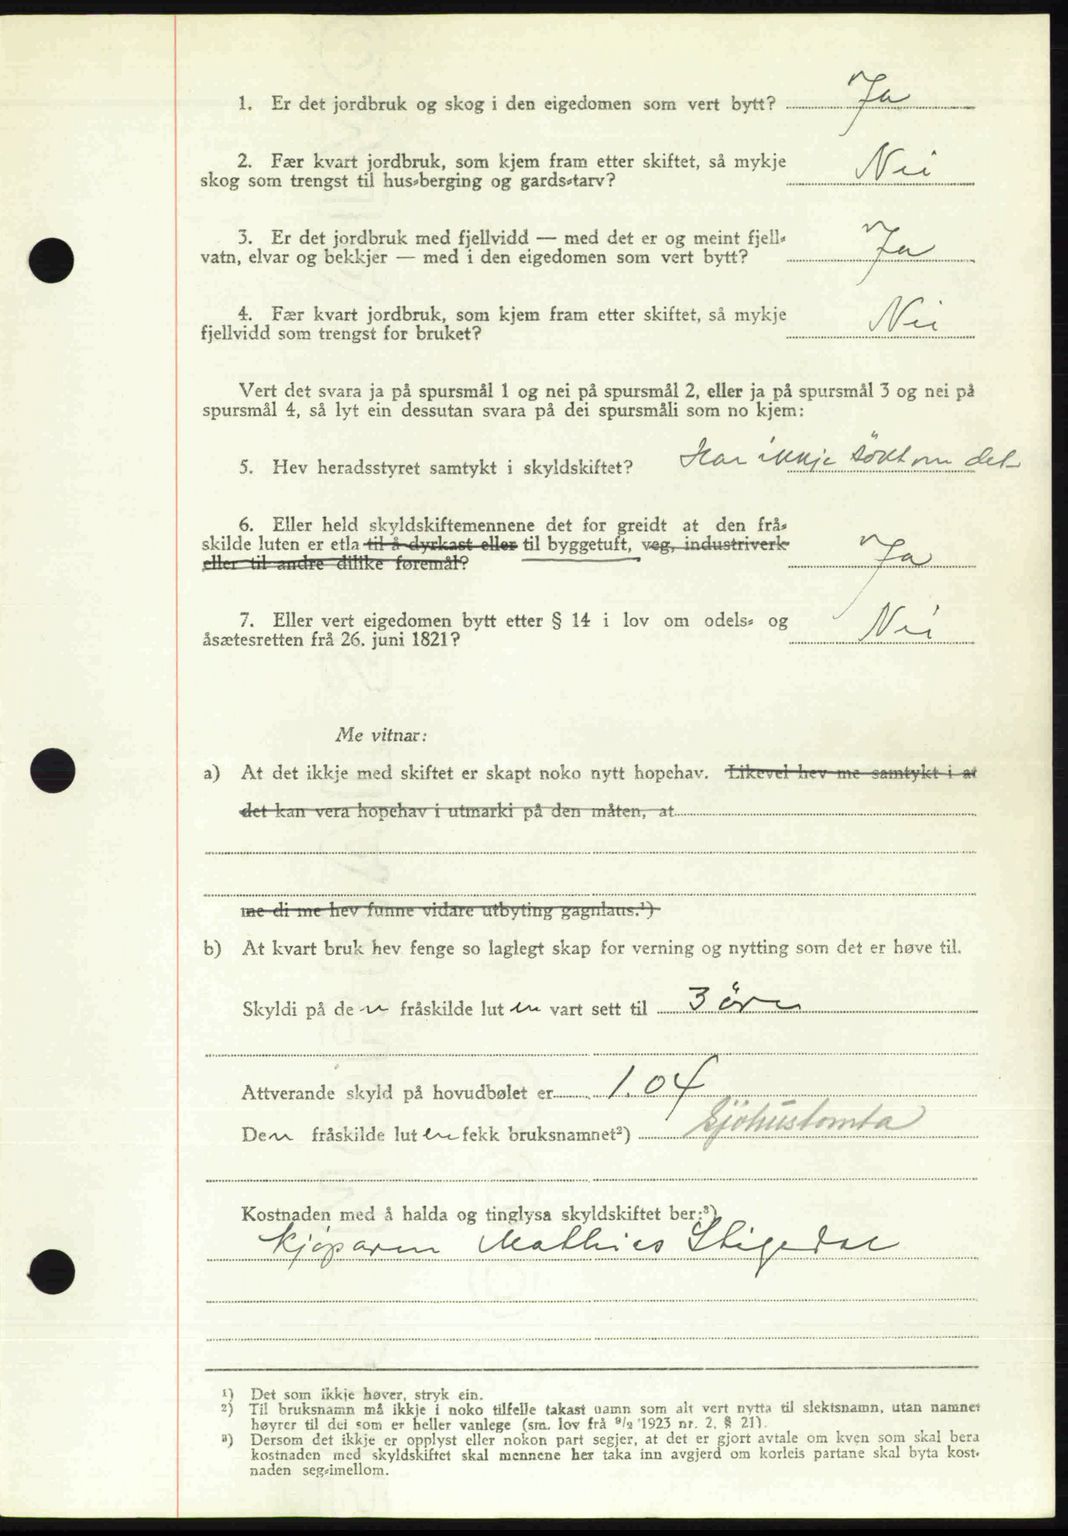 1. Er det jordbruk og skog i den eigedomen som vert bytt? Ja
2. Fær kvart jordbruk, som kjem fram etter skiftet, så mykje
skog som trengst til hus-berging og gards-tarv? Nei
3. Er det jordbruk med fjellvidd — med det er og meint fjell-
vatn, elvar og bekkjer — med i den eigedomen som vert bytt? Ja
4. Fær kvart jordbruk, som kjem fram etter skiftet, så mykje
fjellvidd som trengst for bruket? Nei
Vert det svara ja på spursmål 1 og nei på spursmål 2, eller ja på spursmål 3 og nei på
spursmål 4, så lyt ein dessutan svara på dei spursmåli som no kjem:
5. Hev heradsstyret samtykt i skyldskiftet? Har ikkje søkt om det
6. Eller held skyldskiftemennene det for greidt at den frå-
skilde luten er etla til å dyrkast eller til byggetuft, veg, industriverk
eller til andre dilike føremål? Ja
7. Eller vert eigedomen bytt etter § 14 i lov om odels- og
åsætesretten frå 26. juni 1821? Nei
Me vitnar:
a) At det ikkje med skiftet er skapt noko nytt hopehav. Likevel hev me samtykt i at
det kan vera hopehav i utmarki på den måten, at
me di me hev funne vidare utbyting gagnlaus.¹)
b) At kvart bruk hev fenge so laglegt skap for verning og nytting som det er høve til.
Skyldi på den fråskilde luten vart sett til 3 øre
Attverande skyld på hovudbølet er 1.04
Den fråskilde luten fekk bruksnamnet²) Sjöhustomta
Kostnaden med å halda og tinglysa skyldskiftet ber:³)
Kjøparen Mathias Stigedal
¹) Det som ikkje høver, stryk ein.
²) Til bruksnamn må ikkje i noko tilfelle takast namn som alt vert nytta til slektsnamn, utan namnet
høyrer til dei som er heller vanlege (sm. lov frå ⁹/₂ 1923 nr. 2, § 21).
³) Dersom det ikkje er opplyst eller nokon part segjer, at det er gjort avtale om kven som skal bera
kostnaden med skyldskiftet skal mennene her taka inn avgjerd om korleis partane skal byta kost-
naden seg-imellom.